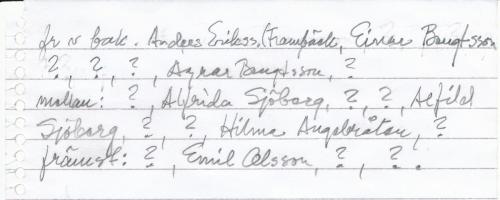 fr v bak. Anders Erikss, (Frambäck, Einar Bengtsson
?, ?, ?, Agnar Bengtsson, ?
mellan: ?, Alfrida Sjöberg, ?, ?, Alfild
Sjöberg, ?, ?, Hilma Angelbråtan, ?
främst: ?, Emil Olsson, ?, ?.